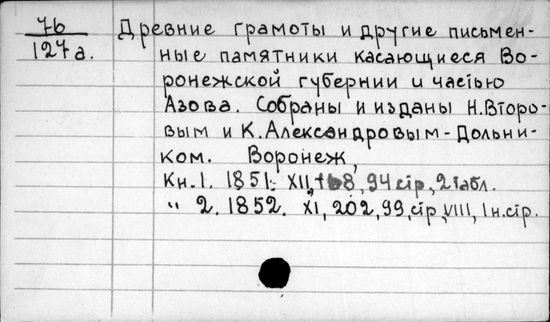 76
127а.
Древние грамоты и другие письмен-
ные памятники касающиеся Во-
ронежской губернии и частью
Азова. Собраны и изданы Н.Второ-
вым и К.Александровым-Дольни-
ком. Воронеж,
Кн.1. 1851. XII, 168, 94 стр., 2 табл.
" 2. 1852. XI, 202, 99, стр, VIII, 1 н.стр.